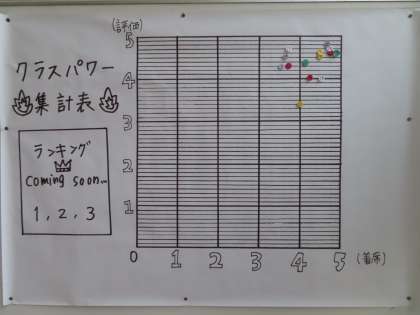 クラスパワー
集計表
ランキング
Coming soon...
1, 2, 3
(評価)
5
4
3
2
1
0 1 2 3 4 5 (着席)